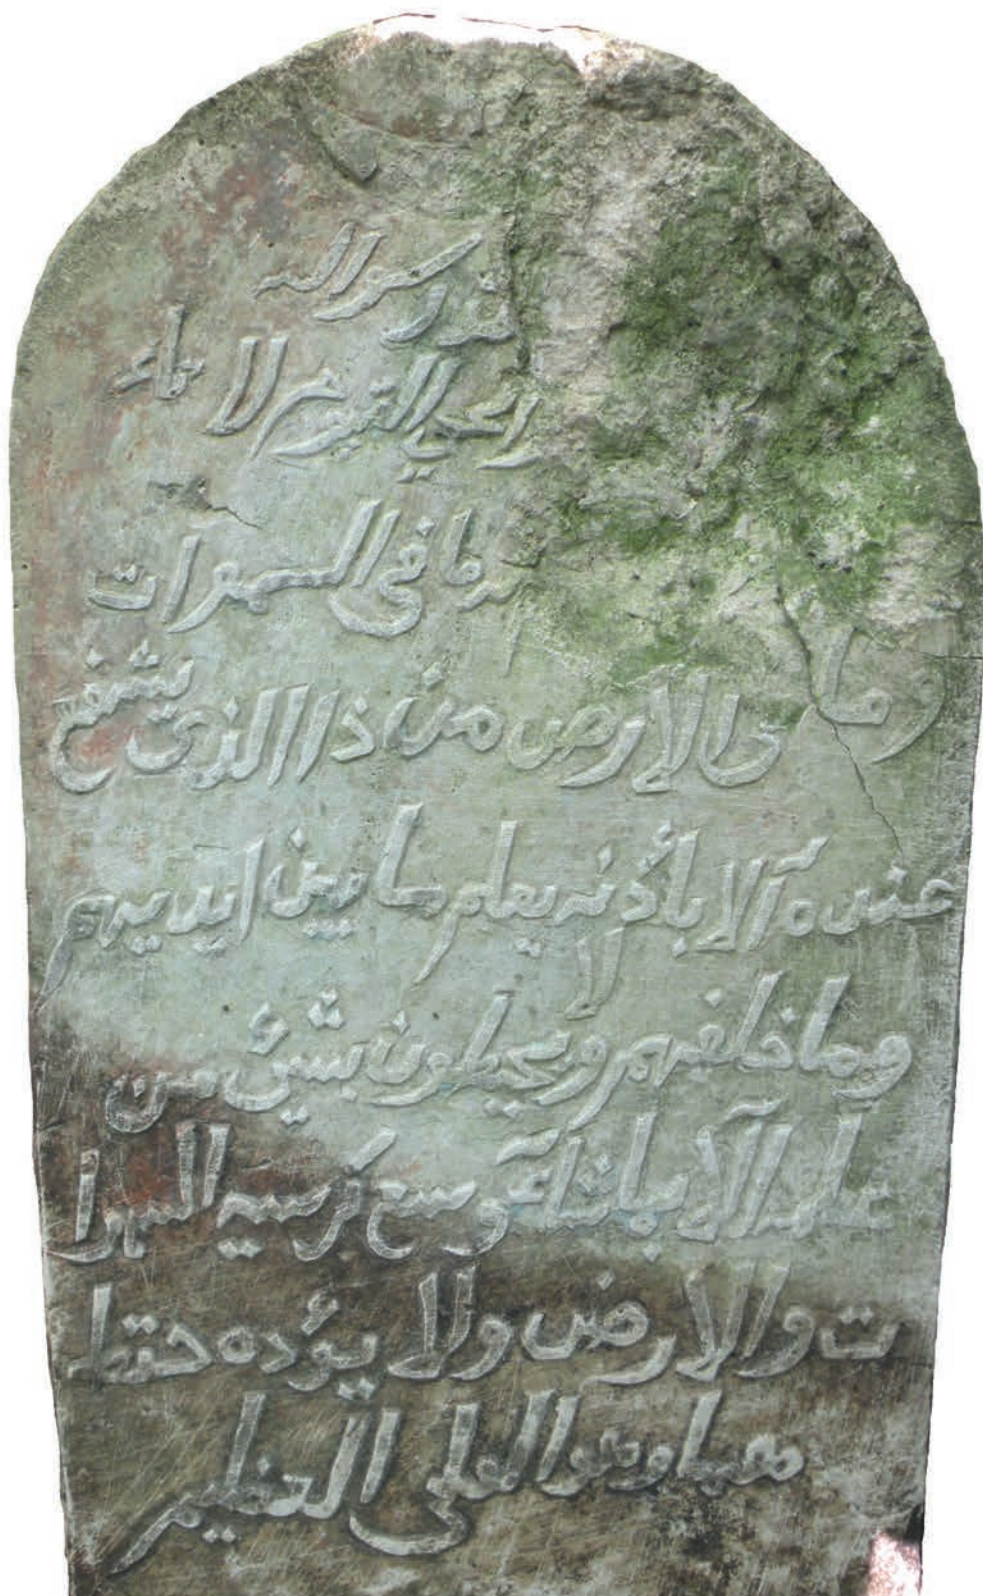 رسو الله
الحي القيوم لا
ما في السموات
وما في الارض من ذا الذي يشفع
عنده آلا بأذنه يعلم ما بين ايديهم
وما خلفهم ولا يحيطون بشيء من
علمه آلا بما شآء وسع كرسيه السموا
ت والارض ولا يؤده حفظ
هما وهوا لعلي العظيم